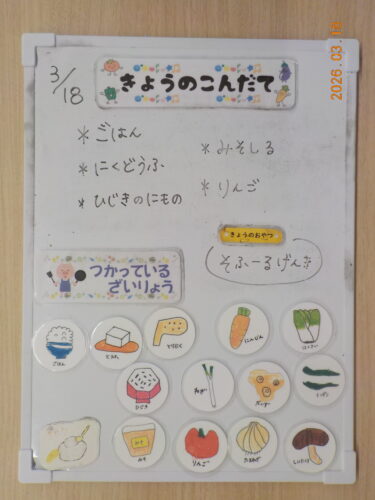 2026.03.18
3/18
きょうのこんだて
*ごはん
*みそしる
*にくどうふ
*りんご
*ひじきのにもの
きょうのおやつ
そふーるげんき
つかっている
ざいりょう
ごはん
とうふ
にんじん
はくさい
ひじき
ねぎ
みそ
りんご
たまねぎ
しいたけ